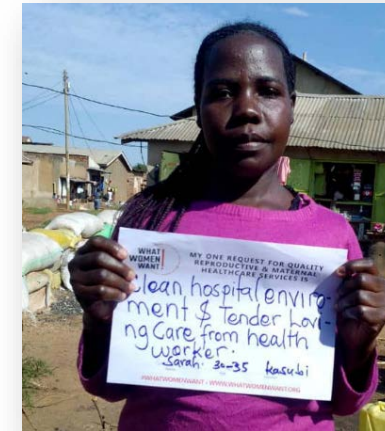 WHAT
WOMEN
WANT
MY ONE REQUEST FOR QUALITY
REPRODUCTIVE & MATERNAL
HEALTHCARE SERVICES IS
Clean hospital enviro-
ment $ Tender lovi-
ng Care from health
worker.
Sarah. 30-35 Kasubi
#WHATWOMENWANT • WWW.WHATWOMENWANT.ORG